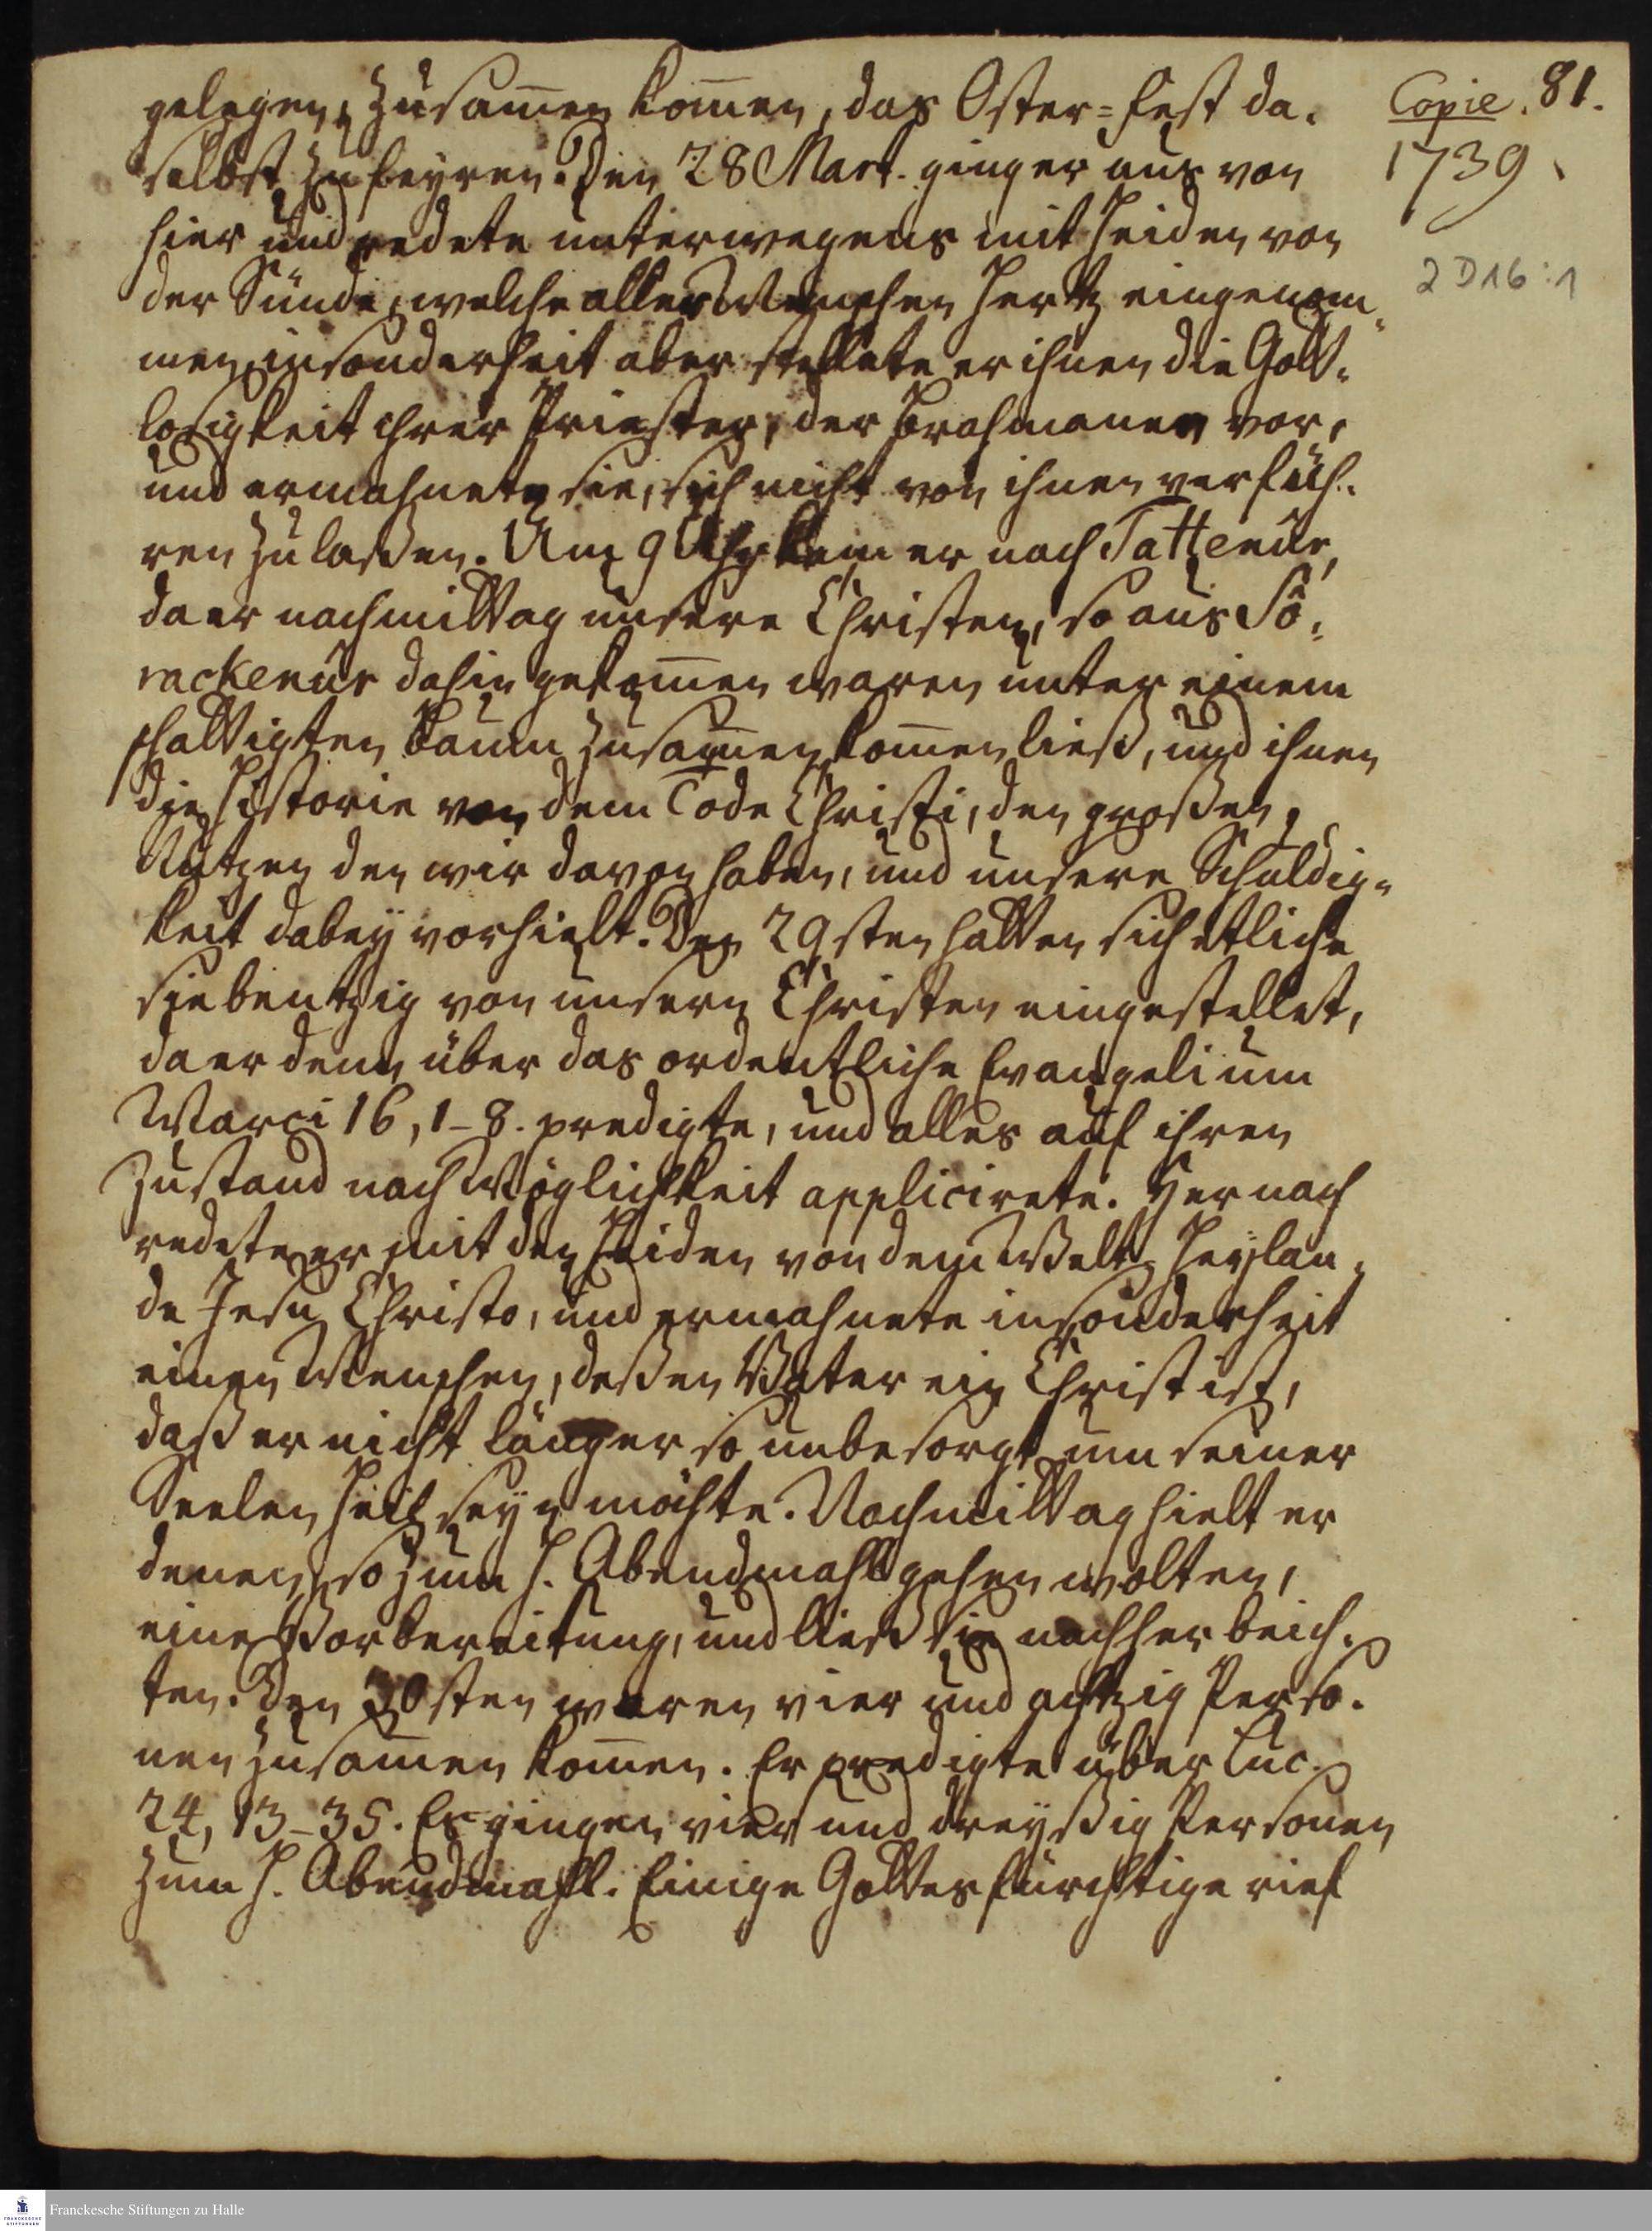 gelegen, zusam̄en kom̄en, das Oster=Fest da-
selbst zu feyren. Den 28 Mart. ging er aus von
hier und redete unterwegens mit Heiden von
der Sünde, welche aller Menschen Hertz eingenom-
men, insonderheit aber stellete er ihnen die Gott-
losigkeit ihrer Priester, der Brahmanen vor,
und ermahnete sie, sich nicht von ihnen verfüh-
ren zu laßen. Um 9 Uhr kam er nach Tattenûr,
da er nachmittag unsere Christen, so aus Sô-
rackenûr dahin gekom̄en waren unter einem
schattigten Baum zusam̄en kom̄en ließ, und ihnen
die Historie von dem Tode Christi, den großen
Nutzen den wir davon haben, und unsere Schuldig-
keit dabey vorhielt. Den 29sten hatten sich etliche
siebentzig von unsern Christen eingestellet,
da er denn über das ordentliche Evangelium
Marci 16, 1-8. predigte, und alles auf ihren
Zustand nach Möglichkeit applicirete. Hernach
redete er mit den Heiden von dem Welt-Heylan-
de Jesu Christo, und ermahnete insonderheit
einen Menschen, deßen Vater ein Christ ist,
daß er nicht länger so unbesorgt um seiner
Seelen Heil seyn möchte. Nachmittag hielt er
denen, so zum H. Abendmahl gehen wolten,
eine Vorbereitung, und ließ sie nachher beich-
ten. Den 30sten waren vier und achtzig Perso-
nen zusam̄en kom̄en. Er predigte über Luc.
24, 13-35. Es gingen vier und dreyßig Personen
zum H. Abendmahl. Einige Gottesfürchtige rief
Copie. 81.
1739.
2 D16:1
Franckesche Stiftungen zu Halle
FRANCKESCHE
STIFTUNGEN